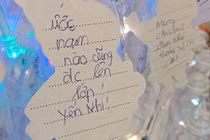 ước
năm
nào cũng
đc lên
lớp!
Yến Nhi!
Merry